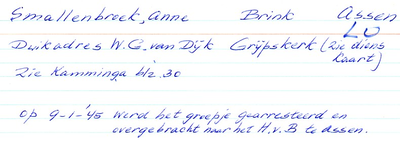 Smallenbroek, Anne Brink Assen
LO
Duikadres W.G. van Dijk Grijpskerk (zie diens
kaart)
Zie Kamminga blz. 30
op 9-1-'45 werd het groepje gearresteerd en
overgebracht naar het H.v.B te Assen.